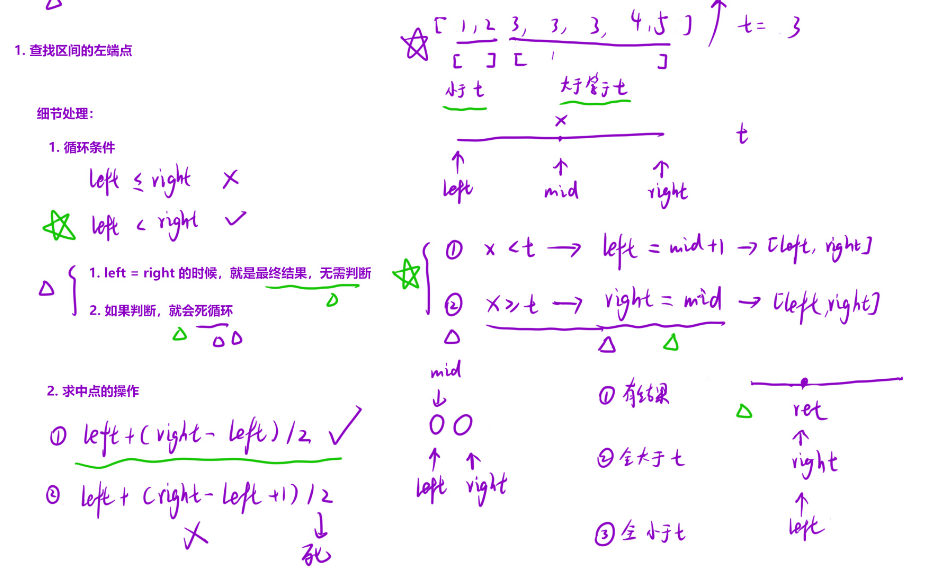 1. 查找区间的左端点
细节处理：
1. 循环条件
left ≤ right ×
left < right ✓
1. left = right 的时候，就是最终结果，无需判断
2. 如果判断，就会死循环
2. 求中点的操作
① left+(right-left)/2 ✓
② left+(right-left+1)/2
×
死
[1,2 3, 3, 3, 4,5] t= 3
[ ] [ ]
小于t 大于等于t
x
t
left mid right
① x<t → left = mid+1 → [left, right]
② x≥t → right = mid → [left,right]
mid
left right
① 有结果
② 全大于t
③ 全小于t
ret
right
left